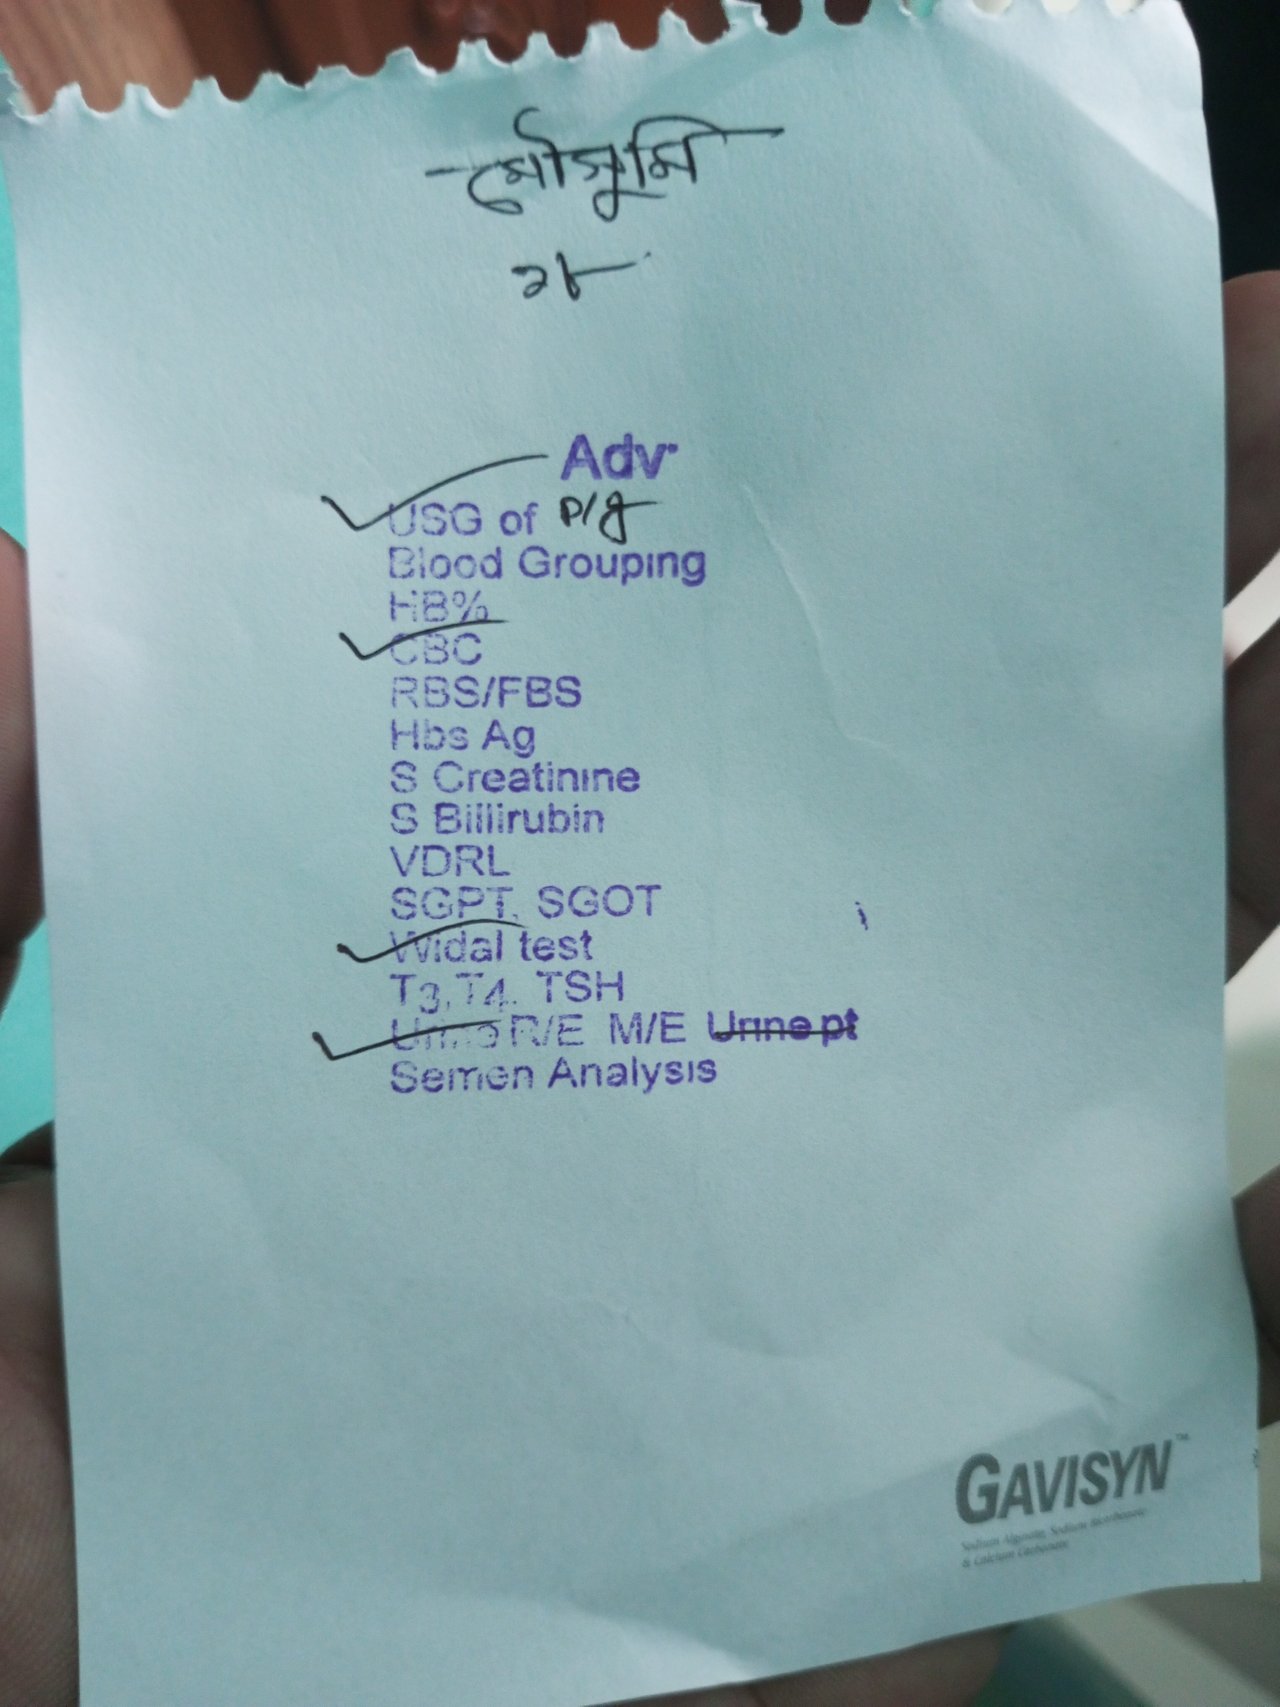 মৌসুমি
২৮
Adv
USG of P/g
Blood Grouping
HB%
CBC
RBS/FBS
Hbs Ag
S Creatinine
S Billirubin
VDRL
SGPT, SGOT
Widal test
T3, T4, TSH
Urine R/E M/E Urine pt
Semen Analysis
GAVISYN™
Sodium Alginate, Sodium Bicarbonate
& Calcium Carbonate